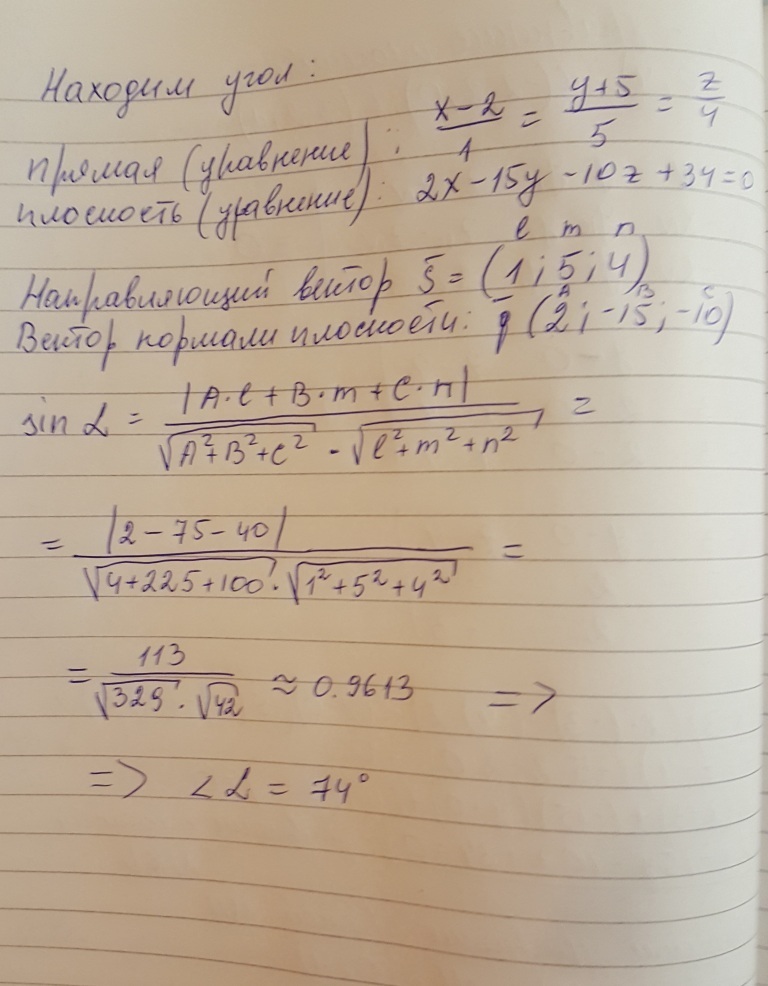 Находим угол:
прямая (уравнение): x-2/1 = y+5/5 = z/4
плоскость (уравнение): 2x-15y-10z+34=0
l m n
Направляющий вектор s̄ = (1; 5; 4)
A B C
Вектор нормали плоскости: q̄ (2; -15; -10)
sin α = |A·l + B·m + C·n| / √A²+B²+C² · √l²+m²+n² =
= |2-75-40| / √4+225+100 · √1²+5²+4² =
= 113 / √329 · √42 ≈ 0.9613 =>
=> <α = 74°